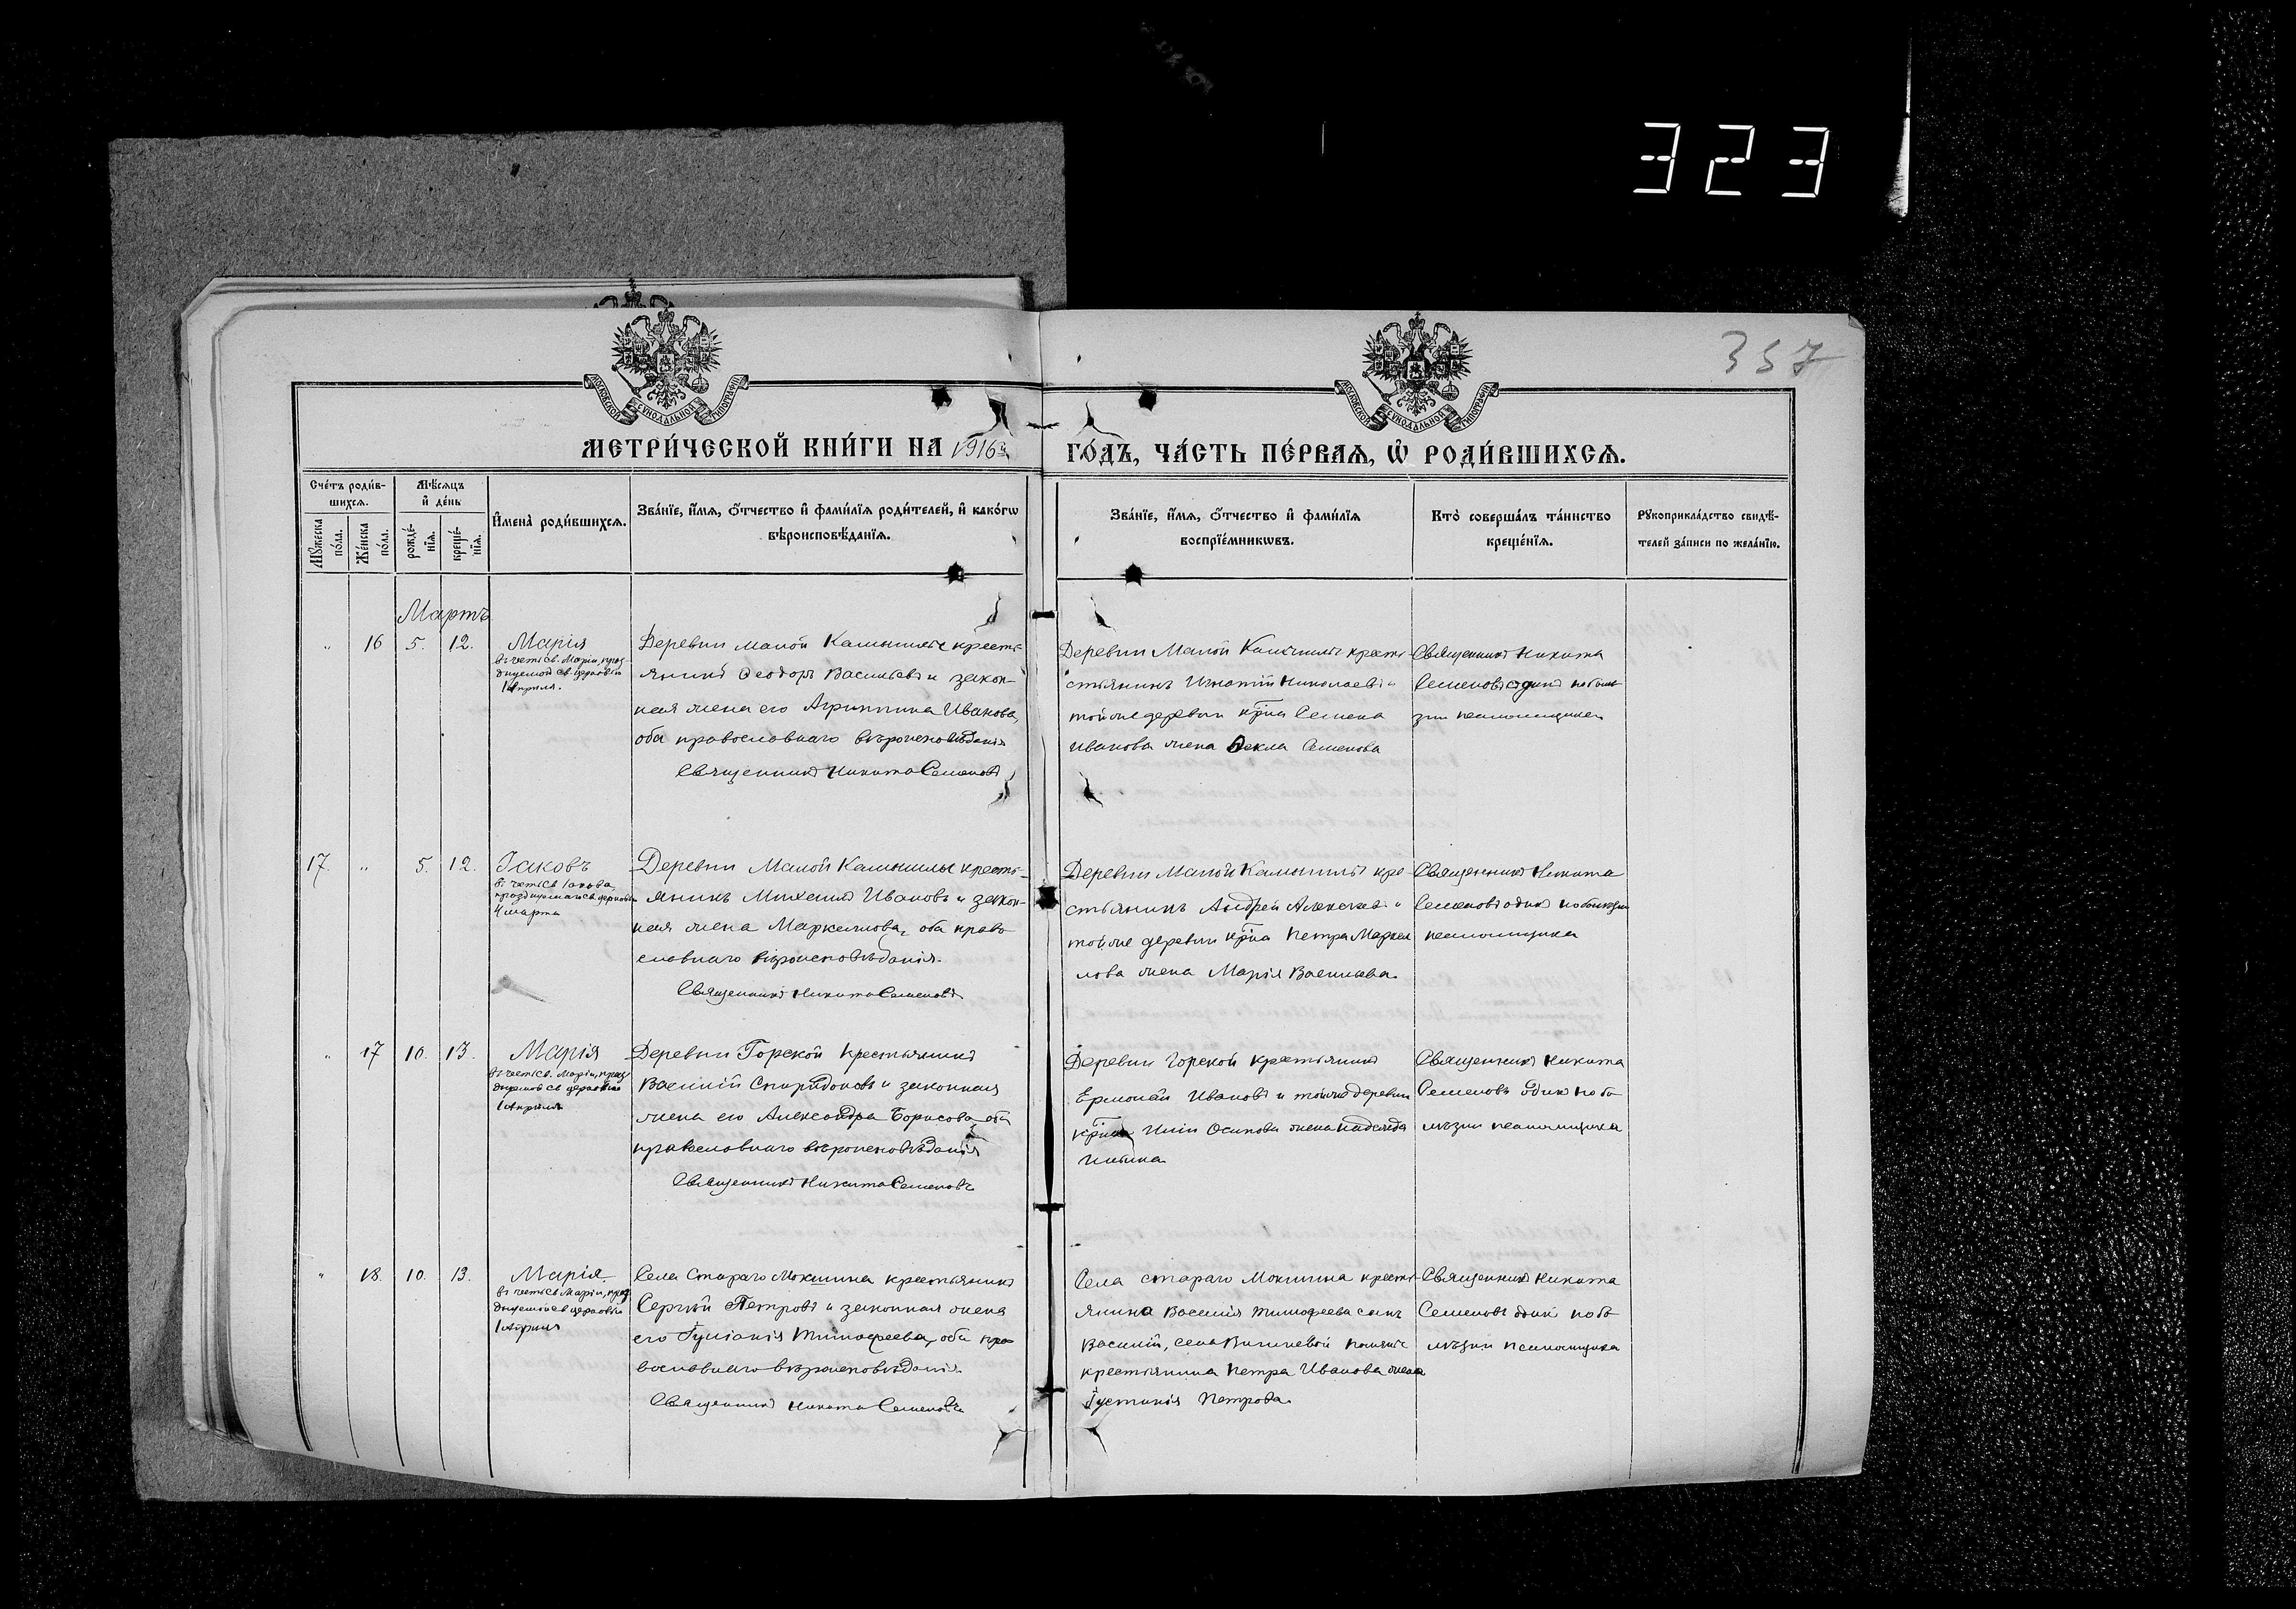 323
357
МОСКОВСКОЙ СѴНОДАЛЬНОЙ ТИПОГРАФІИ
МОСКОВСКОЙ СѴНОДАЛЬНОЙ ТИПОГРАФІИ
МЕТРИ́ЧЕСКОЙ КНИ́ГИ НА 1916й
ГО́ДЪ, ЧА́СТЬ ПЕ́РВАѦ, Ѡ҆ РОДИ́ВШИХСѦ.
Сче́тъ роди́в-
шихсѧ.
Мꙋ́жеска
по́ла.
Же́нска
по́ла.
Мѣ́сѧцъ
и҆ де́нь
рожде́-
нїѧ.
креще́-
нїѧ.
И҆мена̀ роди́вшихсѧ.
Зва́нїе, и҆́мѧ, ѻ҆́тчество и҆ фами́лїѧ роди́телей, и҆ како́гѡ
вѣроисповѣ́данїѧ.
Зва́нїе, и҆́мѧ, ѻ҆́тчество и҆ фами́лїѧ
воспрїе́мникѡвъ.
Кто̀ соверша́лъ та́инство
креще́нїѧ.
Рꙋкоприкла́дство свидѣ́-
телей за́писи по жела́нїю.
Мартъ
" 16 5. 12. Марія
въ честь св. Маріи, праз
днуемой св. церковью
1 Апреля.
Деревни Малой Камышлы кресть-
янинъ Ѳеодоръ Васильевъ и закон-
ная жена его Агриппина Иванова,
оба православнаго вѣроисповѣданія
Священникъ Никита Семеновъ
Деревни Малой Камышлы кресть-
стьянинъ Игнатій Николаевъ и
той же деревни крна Семена
Иванова жена Ѳекла Семенова
Священникъ Никита
Семеновъ одинъ по болѣ
зни псаломщика
17. " 5. 12. Іаковъ
въ честь св Іакова
празднуемаго св церковью
4 марта
Деревни Малой Камышлы кресть-
янинъ Михаилъ Ивановъ и закон-
ная жена Маркеллова, оба право
славнаго вѣроисповѣданія.
Священникъ Никита Семеновъ
Деревни Малой Камышлы кре-
стьянинъ Андрей Алексеевъ и
той же деревни крна Петра Маркел
лова жена Марія Васильева
Священникъ Никита
Семеновъ одинъ по болѣзни
псаломщика
" 17 10. 13. Марія
въ честь св. Маріи, празд
днуемой св церковью
1 Апреля
Деревни Горской крестьянинъ
Василій Спиридоновъ и законная
жена его Александра Борисова, оба
православнаго вѣроисповѣданія
Священникъ Никита Семеновъ
Деревни Горской крестьянинъ
Ермолай Ивановъ и той же деревни
крна Иліи Осипова жена Надежда
Ильина
Священникъ Никита
Семеновъ один по бо
лѣзни псаломщика
" 18. 10. 13. Марія
въ честь св Маріи, праз
днуемой св церковью
1 Апреля
Села Стараго Мокшина крестьянинъ
Сергѣй Петровъ и законная жена
его Іуліанія Тимофеева, оба пра
вославнаго вѣроисповѣданія.
Священникъ Никита Семеновъ
Села Стараго Мокшина кресть-
янина Василія Тимофеева сынъ
Василій, села Вишневой Поляны
крестьянина Петра Иванова жена
Іустинія Петрова
Священникъ Никита
Семеновъ один по бо
лѣзни псаломщика